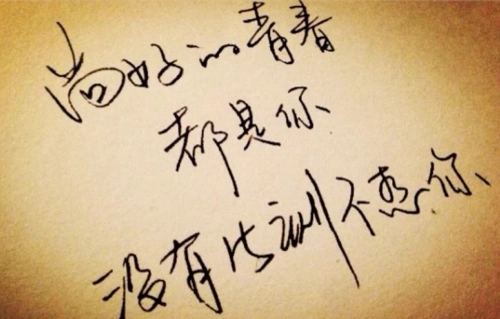 尚好的青春
都是你
没有比训不想你